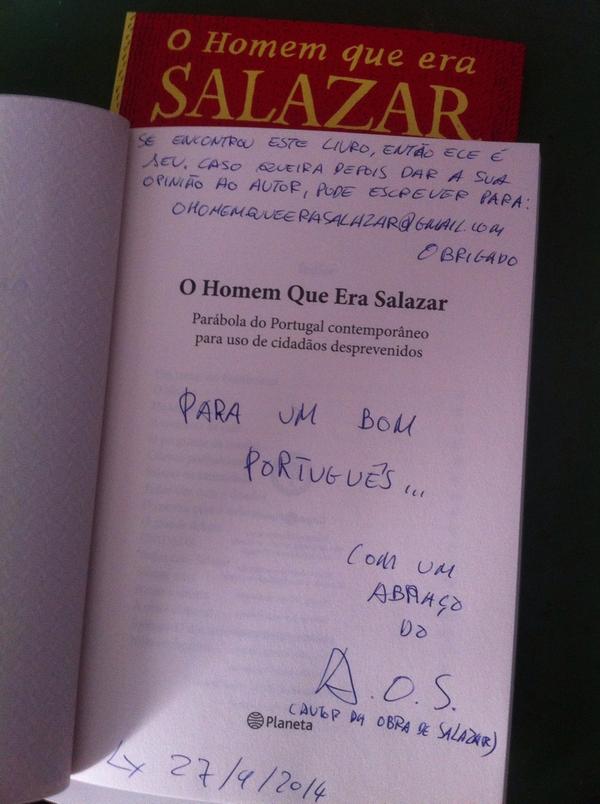 O Homem que era
SALAZAR
SE ENCONTROU ESTE LIVRO, ENTÃO ELE É
SEU. CASO QUEIRA DEPOIS DAR A SUA
OPINIÃO AO AUTOR, PODE ESCREVER PARA:
OHOMEMQUEERASALAZAR@GMAIL.COM
OBRIGADO
O Homem Que Era Salazar
Parábola do Portugal contemporâneo
para uso de cidadãos desprevenidos
PARA UM BOM
PORTUGUÊS...
COM UM
ABRAÇO
DO
A.O.S.
(AUTOR DA OBRA DE SALAZAR)
Planeta
LX 27/9/2014